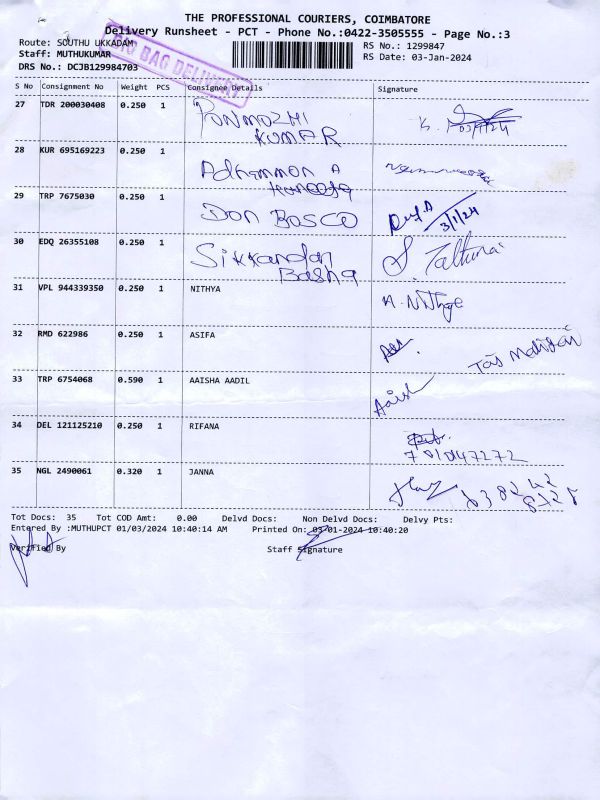 THE PROFESSIONAL COURIERS, COIMBATORE
Delivery Runsheet - PCT - Phone No.:0422-3505555 - Page No.:3
Route: SOUTHU UKKADAM
RS No.: 1299847
Staff: MUTHUKUMAR
RS Date: 03-Jan-2024
DRS No.: DCJB129984703
BAG DELIVERY
S No Consignment No Weight PCS Consignee Details Signature
27 TDR 200030408 0.250 1 PONMOZHI KUMAR
28 KUR 695169223 0.250 1
29 TRP 7675030 0.250 1 DON BOSCO 3/1/24
30 EDQ 26355108 0.250 1 Sikkandan Basha
31 VPL 944339350 0.250 1 NITHYA
32 RMD 622986 0.250 1 ASIFA
33 TRP 6754068 0.590 1 AAISHA AADIL Aaish
34 DEL 121125210 0.250 1 RIFANA
35 NGL 2490061 0.320 1 JANNA
Tot Docs: 35 Tot COD Amt: 0.00 Delvd Docs: Non Delvd Docs: Delvy Pts:
Entered By :MUTHUPCT 01/03/2024 10:40:14 AM Printed On: 03-01-2024 10:40:20
Verified By Staff Signature